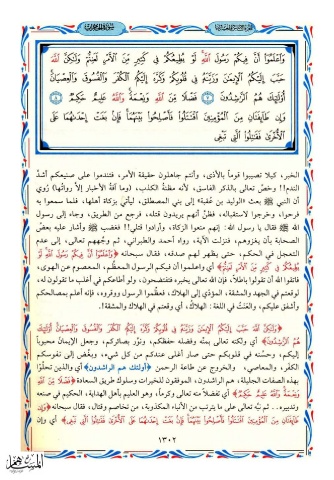 وَاعْلَمُوا أَنَّ فِيكُمْ رَسُولَ اللَّهِ لَوْ يُطِيعُكُمْ فِي كَثِيرٍ مِنَ الْأَمْرِ لَعَنِتُّمْ وَلَكِنَّ اللَّهَ
حَبَّبَ إِلَيْكُمُ الْإِيمَانَ وَزَيَّنَهُ فِي قُلُوبِكُمْ وَكَرَّهَ إِلَيْكُمُ الْكُفْرَ وَالْفُسُوقَ وَالْعِصْيَانَ
أُولَئِكَ هُمُ الرَّاشِدُونَ ۝٧ فَضْلًا مِنَ اللَّهِ وَنِعْمَةً وَاللَّهُ عَلِيمٌ حَكِيمٌ ۝٨
وَإِنْ طَائِفَتَانِ مِنَ الْمُؤْمِنِينَ اقْتَتَلُوا فَأَصْلِحُوا بَيْنَهُمَا فَإِنْ بَغَتْ إِحْدَاهُمَا عَلَى
الْأُخْرَى فَقَاتِلُوا الَّتِي تَبْغِي
الخبر، كيلا تصيبوا قوماً بالأذى، وأنتم جاهلون حقيقة الأمر، فتندموا على صنيعكم أشدَّ
الندم!! وخصَّ تعالى بالذكر الفاسق، لأنه مظنة الكذب، (وما آفة الأخبار إلا رواتها) رُوي
أن النبي ﷺ بعث «الوليد بن عُقبة» إلى بني المصطلق، ليأتيَ بزكاة أهلها، فلما سمعوا به
فرحوا، وخرجوا لاستقباله، فظنَّ أنهم يريدون قتله، فرجع من الطريق، وجاء إلى رسول
الله ﷺ فقال يا رسول الله: إنهم منعوا الزكاة، وأرادوا قتلي!! فغضب ﷺ وأشار عليه بعضُ
الصحابة بأن يغزوهم، فنزلت الآية، رواه أحمد والطبراني، ثم وجَّههم تعالى، إلى عدم
التعجل في الحكم، حتى يظهر لهم صدقه، فقال سبحانه ﴿وَاعْلَمُوا أَنَّ فِيكُمْ رَسُولَ اللَّهِ لَوْ
يُطِيعُكُمْ فِي كَثِيرٍ مِنَ الْأَمْرِ لَعَنِتُّمْ﴾ أي واعلموا أن فيكم الرسول المعظَّم، المعصوم عن الهوى،
فاتقوا الله أن تقولوا باطلاً، فإن الله تعالى يخبره فتفتضحون، ولو أطاعكم في أغلب ما تقولون له،
لوقعتم في الجهد والمشقة، المؤدي إلى الهلاك، فعظموا الرسول ووقروه، فإنه أعلم بمصالحكم
وأشفق عليكم، والعَنَتُ في اللغة: الهلاكُ، أي وقعتم في الهلاك والمشقة!.
﴿وَلَكِنَّ اللَّهَ حَبَّبَ إِلَيْكُمُ الْإِيمَانَ وَزَيَّنَهُ فِي قُلُوبِكُمْ وَكَرَّهَ إِلَيْكُمُ الْكُفْرَ وَالْفُسُوقَ وَالْعِصْيَانَ أُولَئِكَ
هُمُ الرَّاشِدُونَ﴾ أي ولكنه تعالى بمنِّه وفضله حفظكم، ونوَّر بصائركم، وجعل الإيمانَ محبوباً
إليكم، وحسَّنه في قلوبكم حتى صار أغلى عندكم من كل شيء، وبغَّض إلى نفوسكم
الكفر، والمعاصي، والخروج عن طاعة الرحمن ﴿أولئك هم الراشدون﴾ أي والذين تحلَّوا
بهذه الصفات الجليلة، هم الراشدون، الموفقون للخيرات وسلوك طريق السعادة ﴿فَضْلًا مِنَ اللَّهِ
وَنِعْمَةً وَاللَّهُ عَلِيمٌ حَكِيمٌ﴾ أي تفضلاً منه تعالى وكرماً، وهو العليم بأهل الهداية، الحكيم في صنعه
وتدبيره.. ثم نبَّه تعالى على ما يترتب من الأنباء المكذوبة، من تخاصم وقتال، فقال سبحانه ﴿وَإِنْ
طَائِفَتَانِ مِنَ الْمُؤْمِنِينَ اقْتَتَلُوا فَأَصْلِحُوا بَيْنَهُمَا فَإِنْ بَغَتْ إِحْدَاهُمَا عَلَى الْأُخْرَى فَقَاتِلُوا الَّتِي تَبْغِي﴾ أي وإن
١٣٠٢